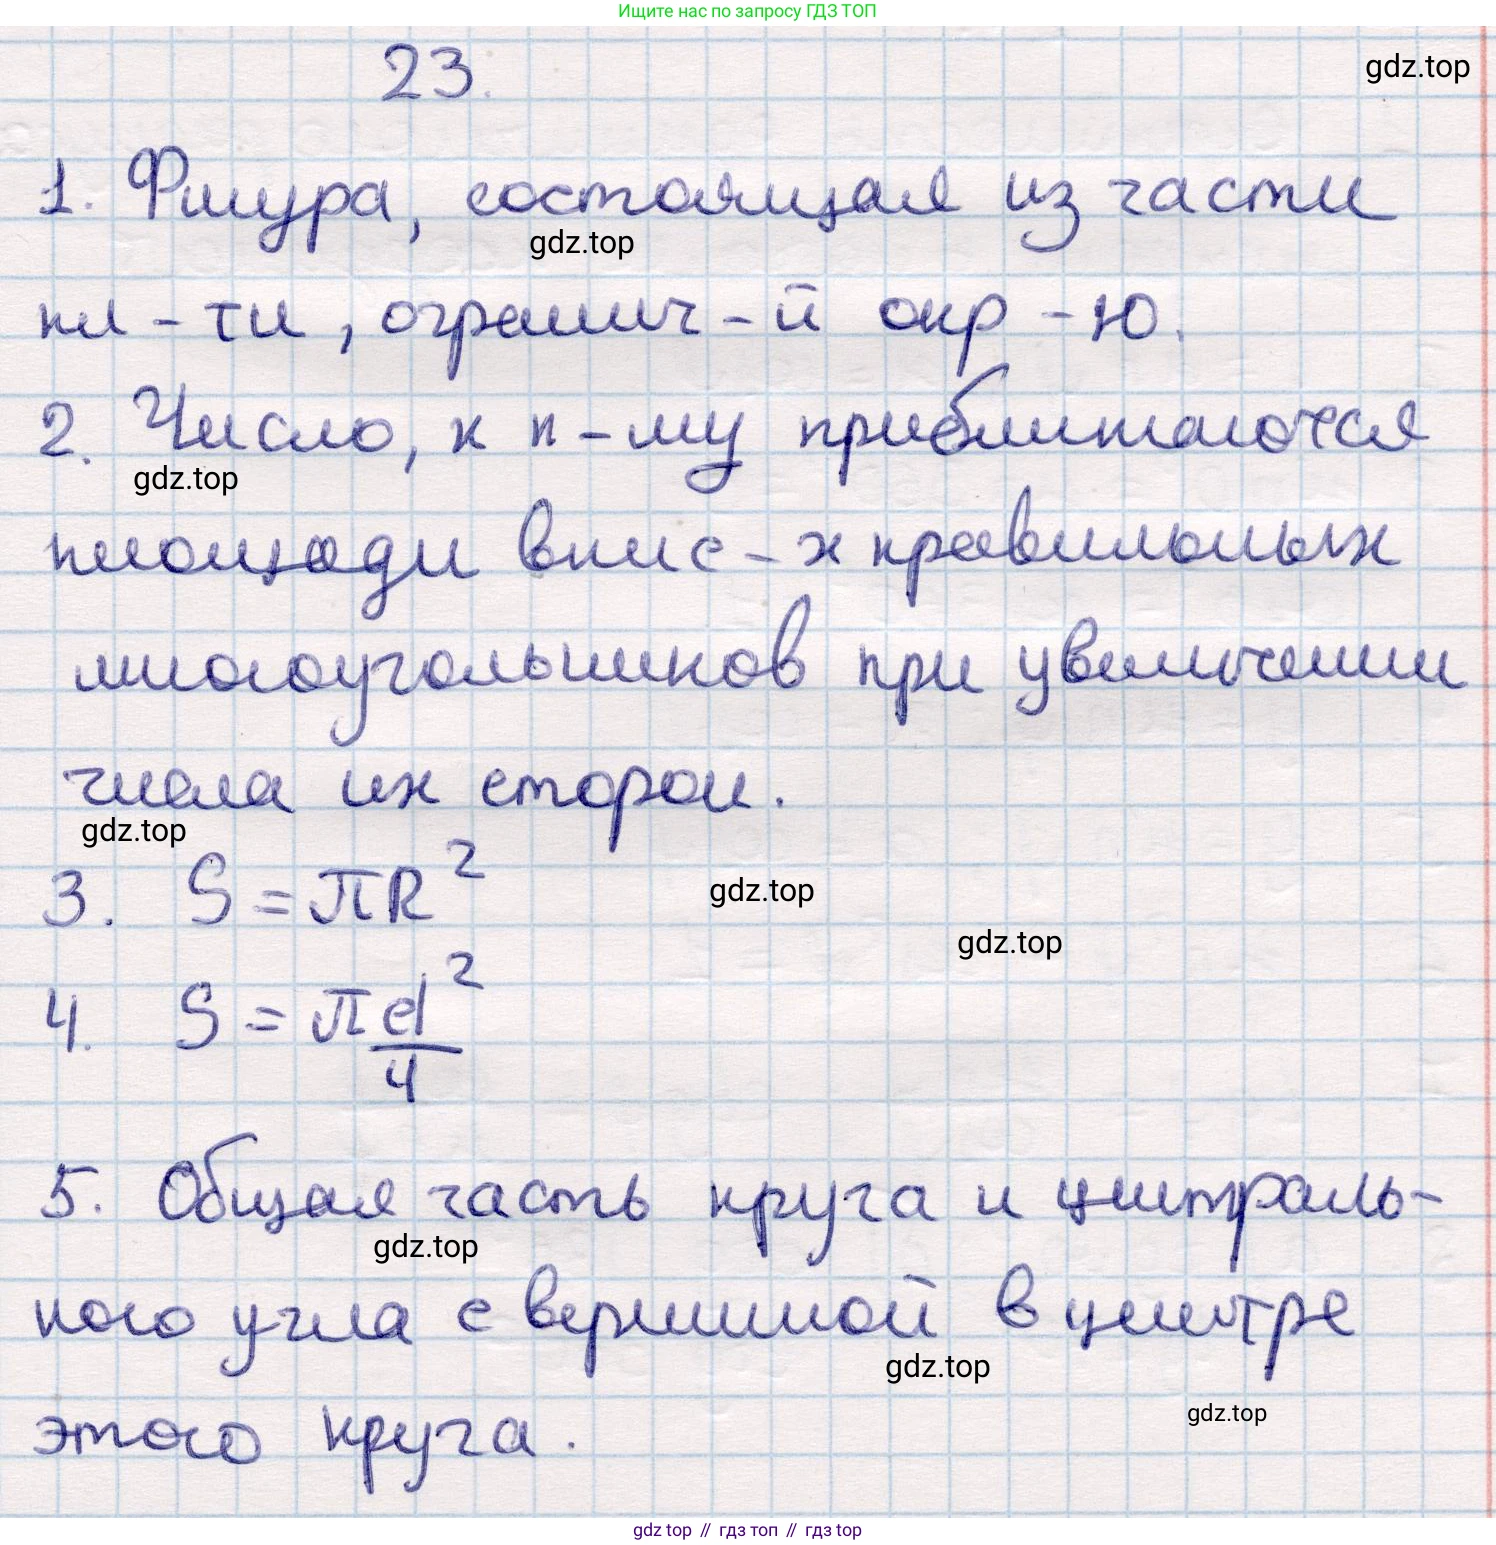 Ищите нас по запросу ГДЗ ТОП
23.
gdz.top
1. Фигура, состоящая из части
gdz.top
пл-ти, огранич-й окр-ю.
2. Число, к к-му приближаются
gdz.top
площади впис-х правильных
многоугольников при увеличении
числа их сторон.
gdz.top
3. S = πR²
gdz.top
gdz.top
4. S = πd²/4
5. Общая часть круга и централь-
gdz.top
ного угла с вершиной в центре
gdz.top
gdz.top
этого круга.
gdz top // гдз топ // гдз top